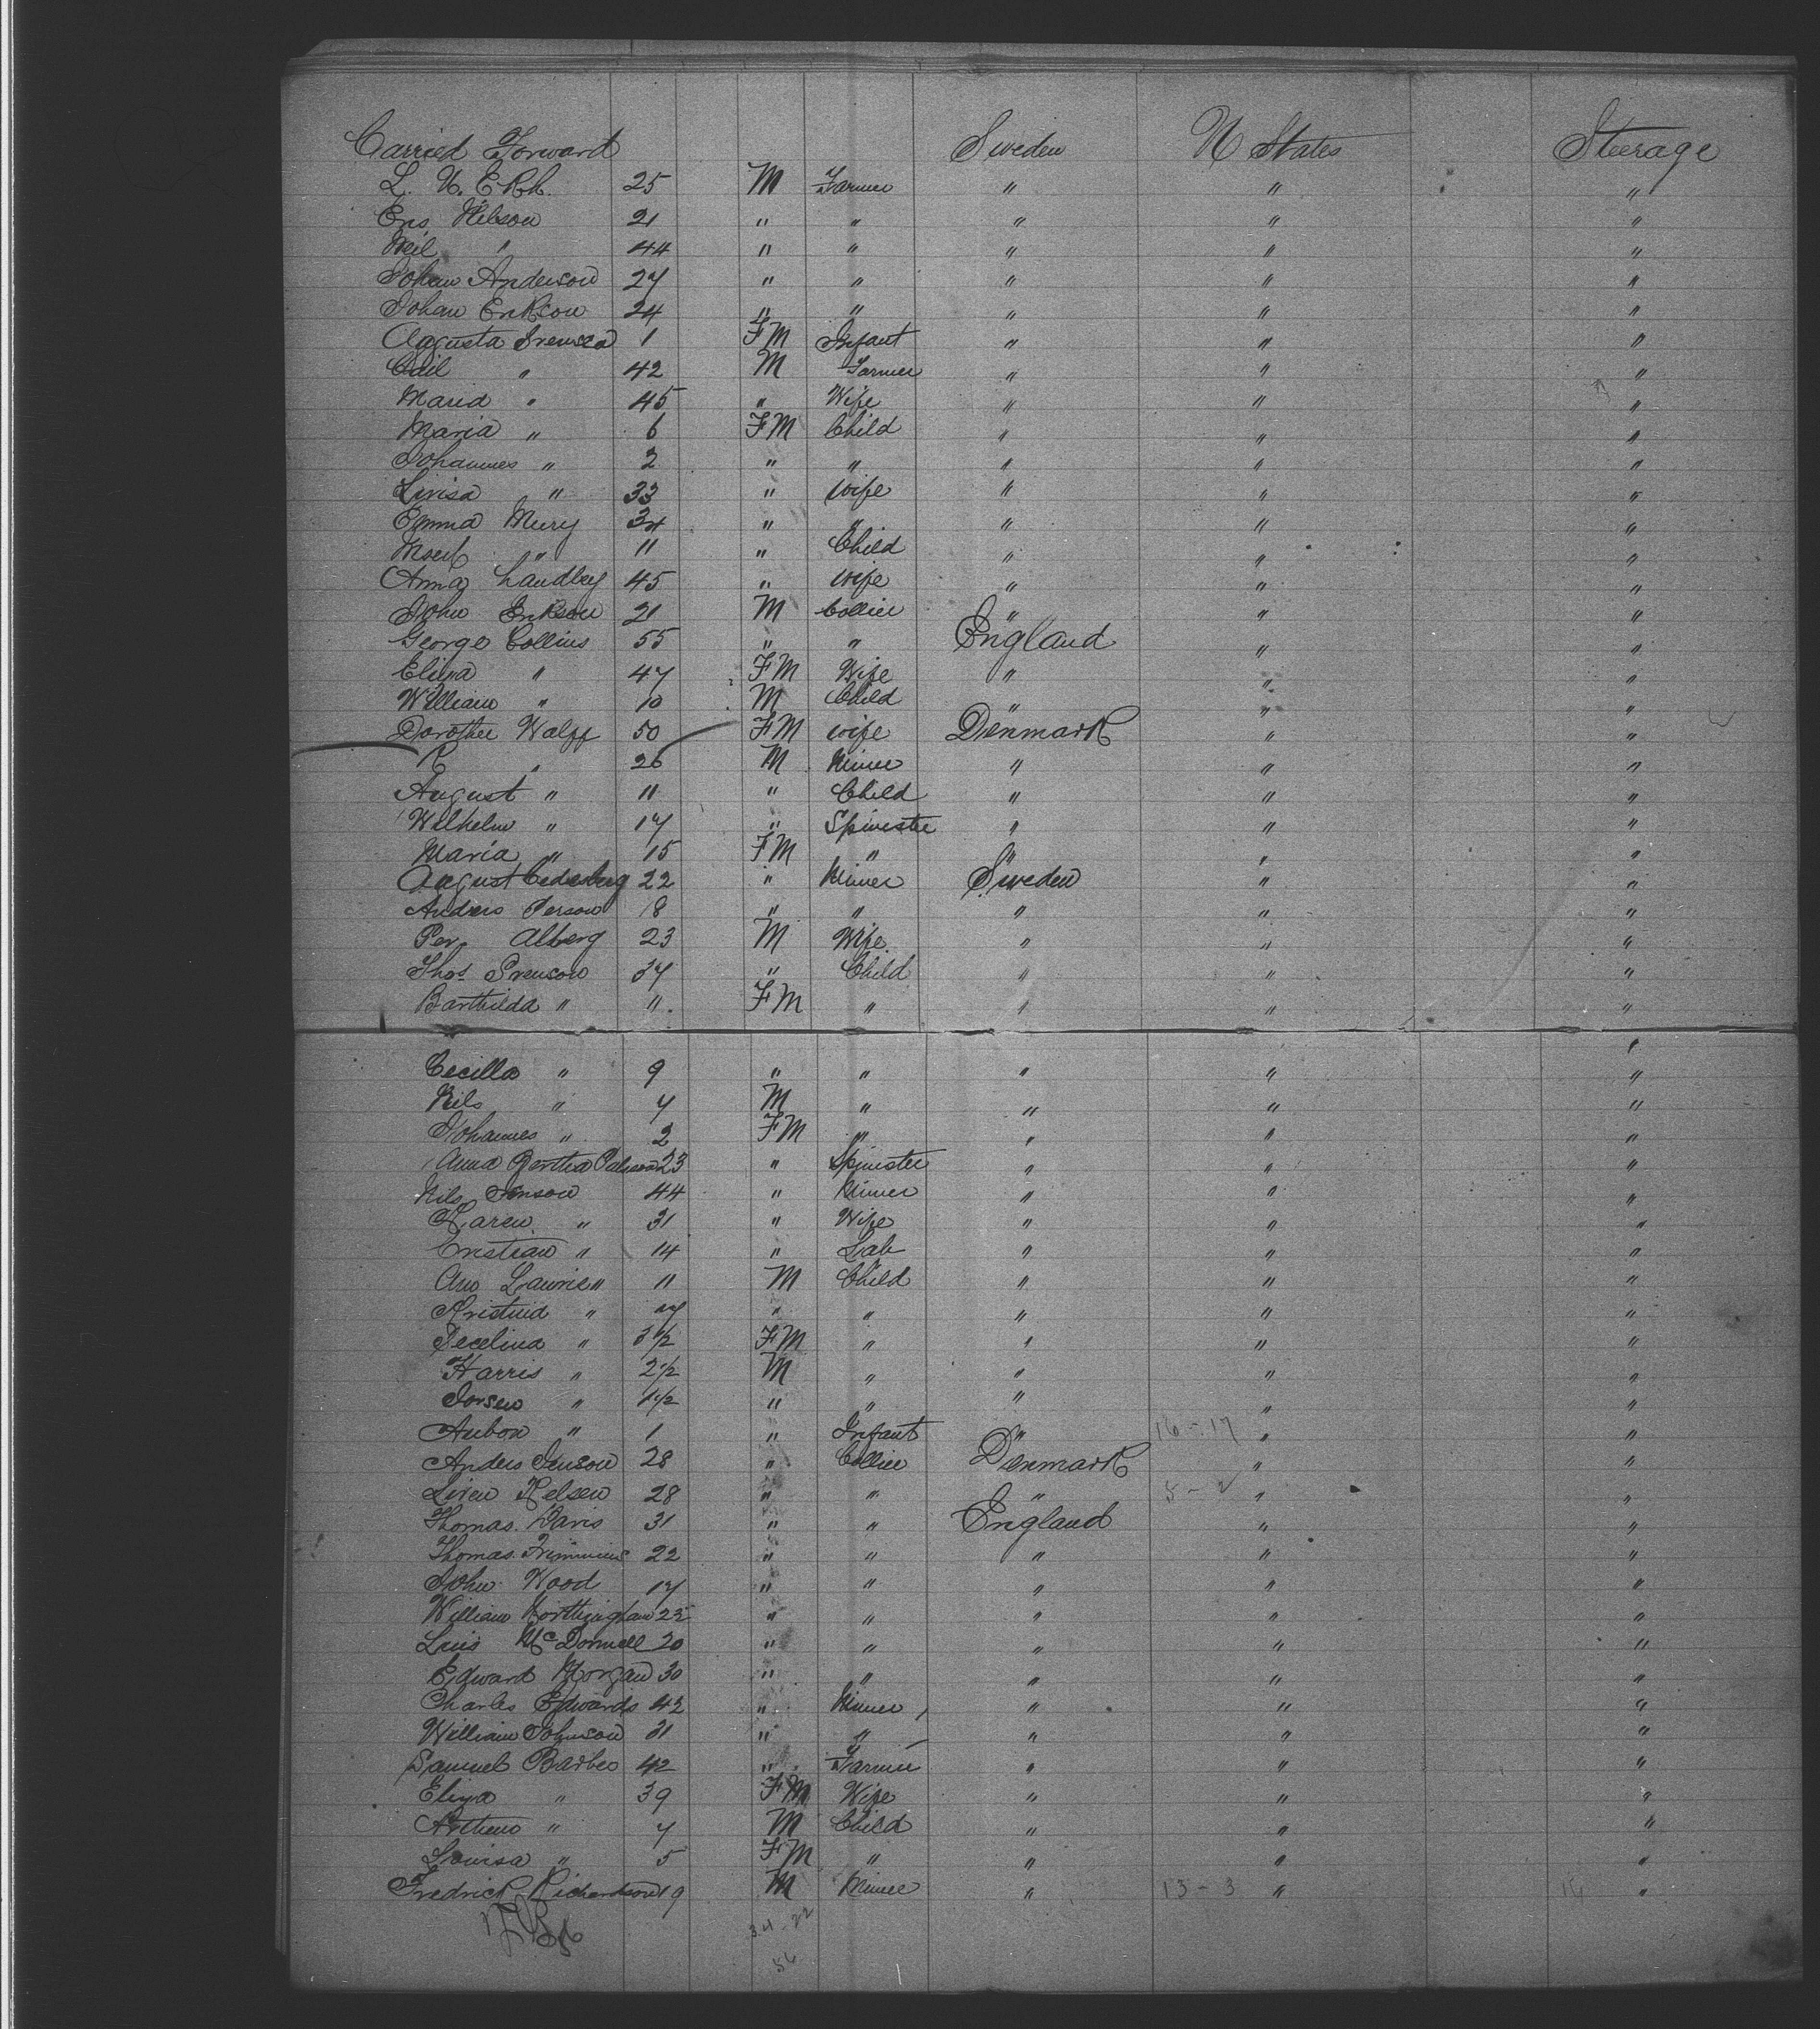 Carried Forward Sweden U States Steerage
L. U. Ekh. 25 M Farmer " " "
Ens Nilson 21 " " " " "
Neil " 44 " " " " "
Johan Anderson 27 " " " " "
Johan Erikson 24 " " " " "
Agusta Svensson 1 FM Infant " " "
Carl " 42 M Farmer " " "
Maria " 45 " Wife " " "
Maria " 6 FM Child " " "
Johannes " 2 " " " " "
Lovisa " 33 " wife " " "
Emma Mury 34 " " " " "
" 11 " Child " " "
Anna Landberg 45 " wife " " "
John Erikson 21 M Collier " " "
George Collins 55 " " England " "
Eliza " 47 FM Wife " " "
William " 10 M Child " " "
Dorothee Walff 50 FM wife Denmark " "
R " 26 M Miner " " "
August " 11 " Child " " "
Wilhelm " 17 " Spinster " " "
Maria " 15 FM " " " "
August Cedesberg 22 " Miner Sweden " "
Anders Person 18 " " " " "
Per Alberg 23 M Wife " " "
Thos Svenson 37 " Child " " "
Barthilda " 11 FM " " " "
Cecilla " 9 " " " " "
Nils " 7 M " " " "
Johannes " 2 FM " " " "
Anna Bertha 23 " Spinster " " "
Nils Jonson 44 " Miner " " "
Karen " 31 " Wife " " "
Cristian " 14 " Lab " " "
Ano Laurie " 11 M Child " " "
Kristina " 7 " " " " "
Pecelina " 3 1/2 FM " " " "
Harris " 2 1/2 M " " " "
Jorsen " 1 1/2 " " " " "
Anbon " 1 " Infant " 16 - 17 " "
Anders Jenson 28 " Collier Denmark " "
Siren Nelsen 28 " " " 5 - 2 " "
Thomas Davis 31 " " England " "
Thomas Frimmins 22 " " " " "
John Wood 17 " " " " "
William Northingham 22 " " " " "
Luis McDonnell 20 " " " " "
Edward Morgan 30 " " " " "
Charles Edwards 42 " Miner " " "
William Johnson 31 " " " " "
Samuel Barber 42 " Farmer " " "
Eliza " 39 FM Wife " " "
" 7 M Child " " "
Louisa " 5 FM " " " "
Fredrick Richardson 19 M Miner " 13 - 3 " "
34 - 22
56